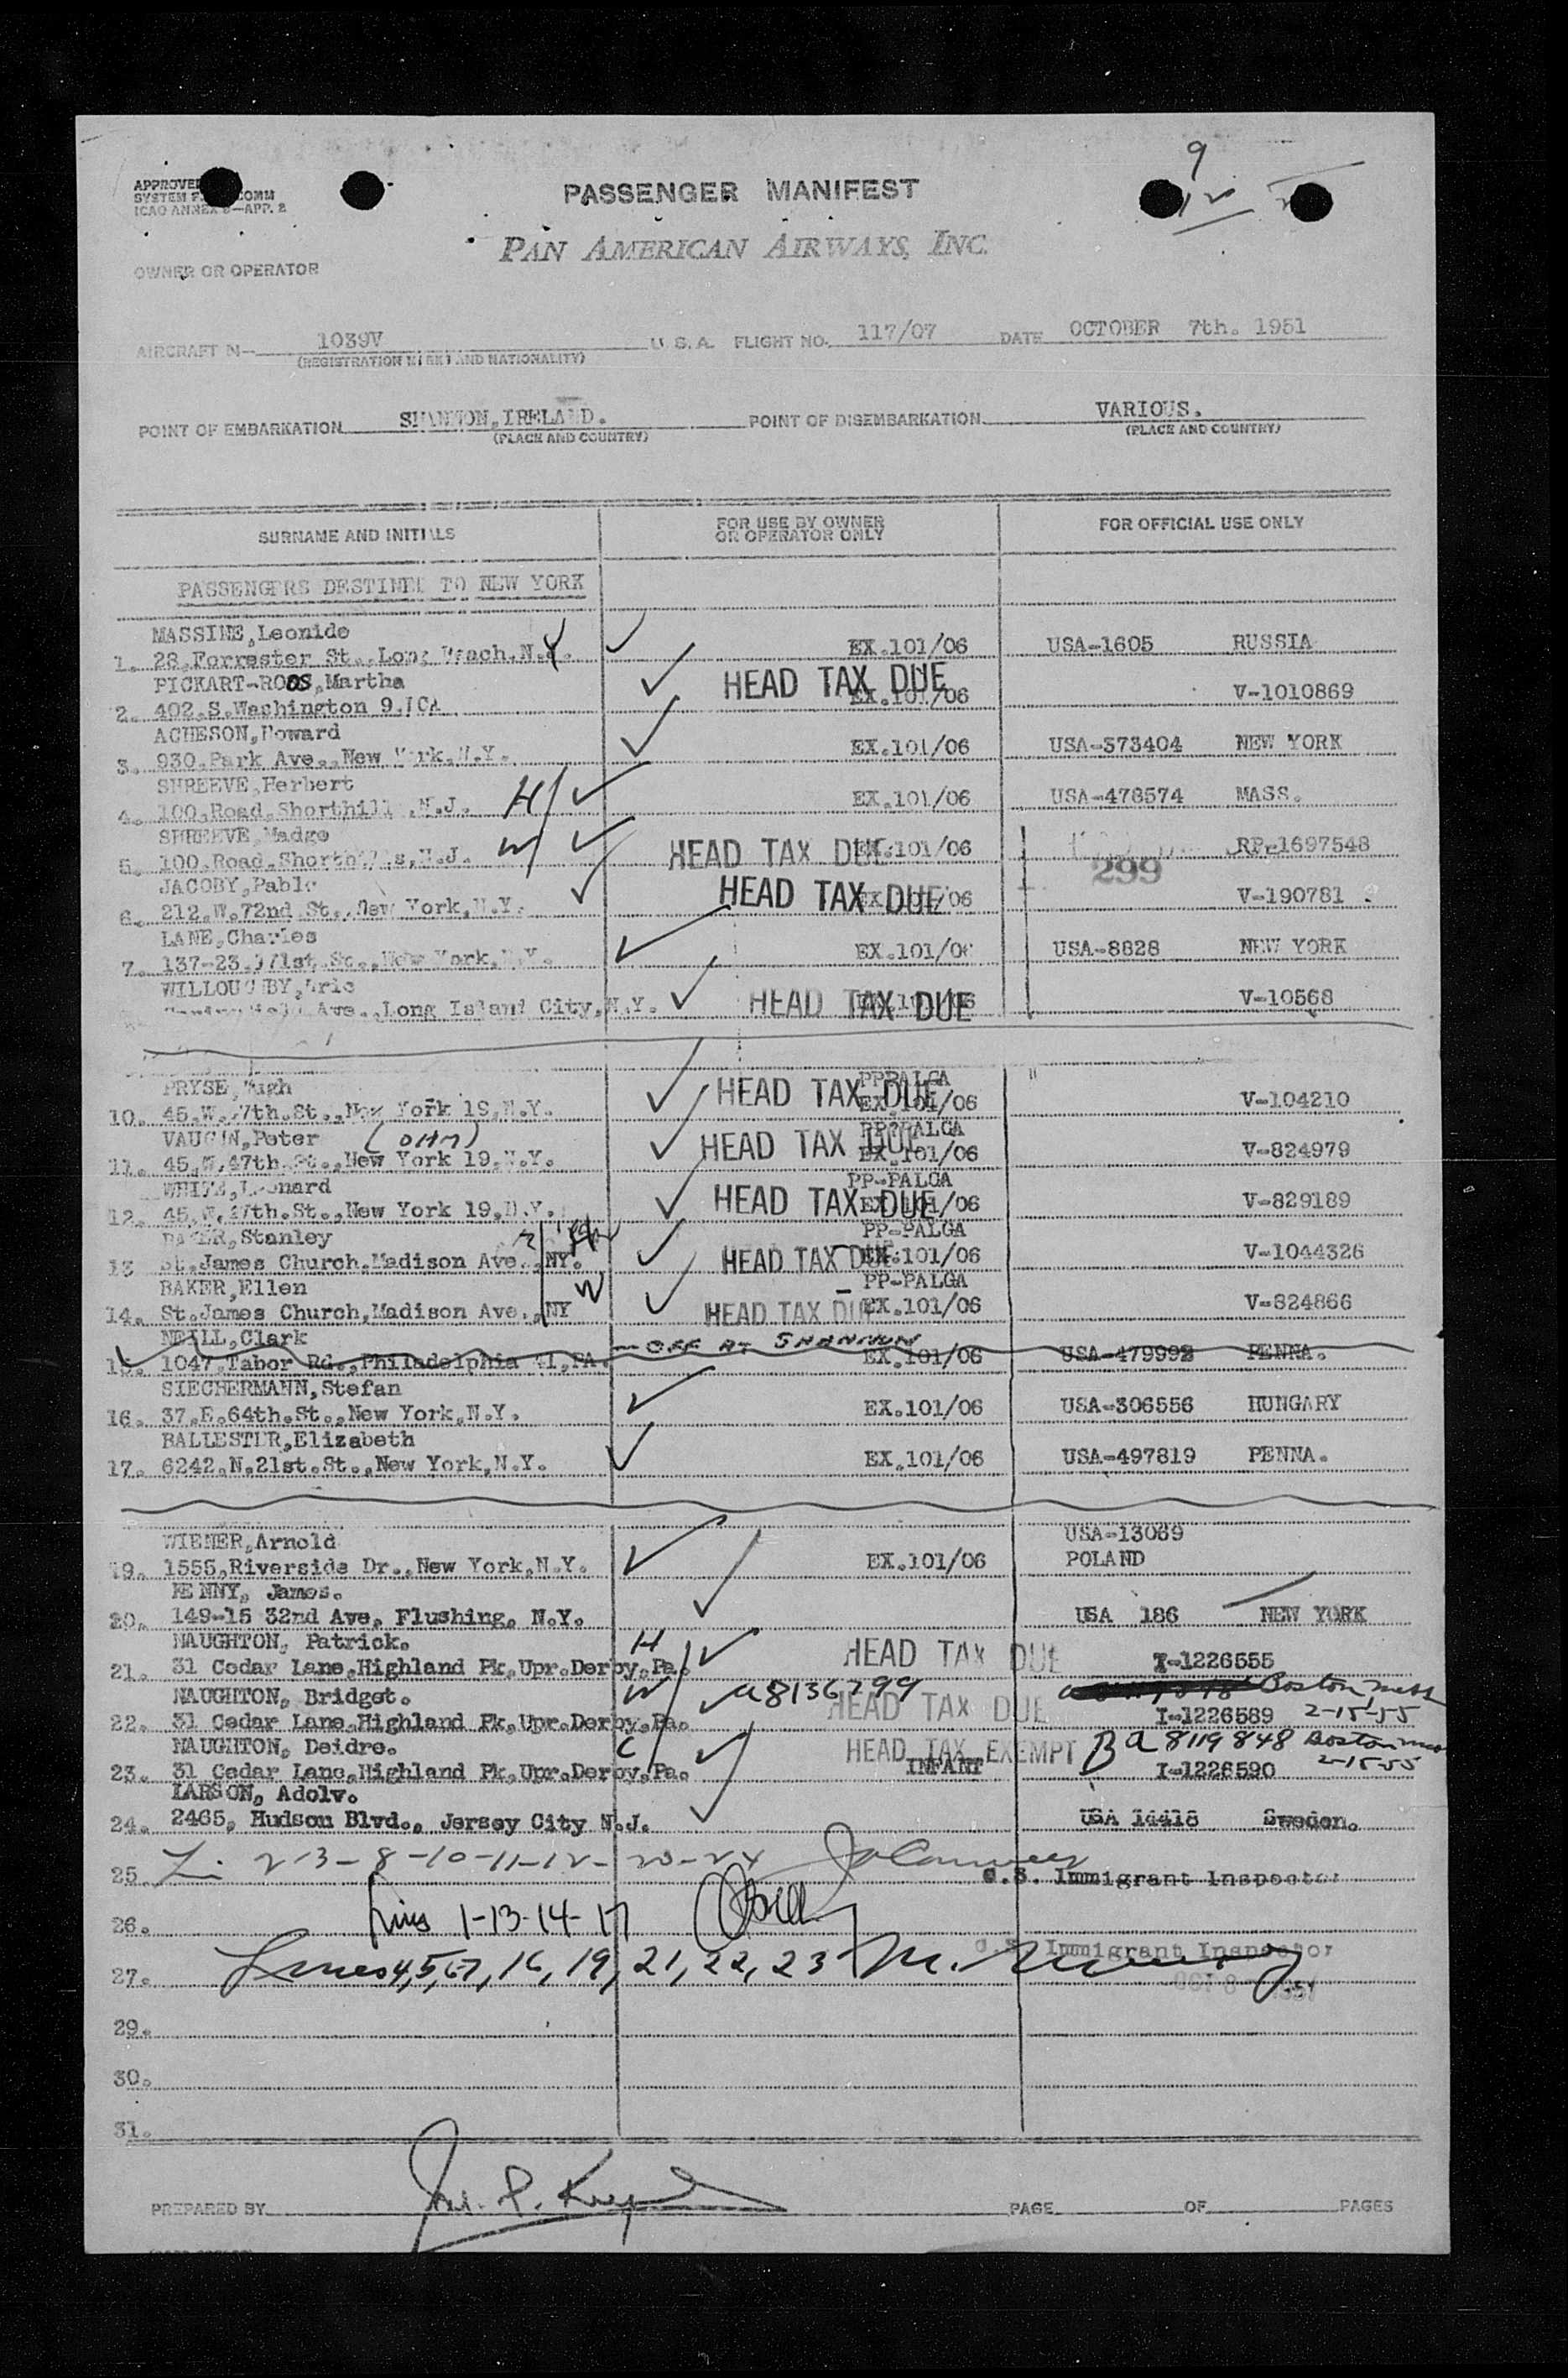 APPROVED
ICAO ANNEX 9—APP. 2
PASSENGER MANIFEST
9
12
PAN AMERICAN AIRWAYS, INC.
OWNER OR OPERATOR
AIRCRAFT N— 1039V U. S. A. FLIGHT NO. 117/07 DATE OCTOBER 7th. 1951
(REGISTRATION MARK AND NATIONALITY)
POINT OF EMBARKATION SHANNON, IRELAND. POINT OF DISEMBARKATION VARIOUS.
(PLACE AND COUNTRY) (PLACE AND COUNTRY)
SURNAME AND INITIALS FOR USE BY OWNER OR OPERATOR ONLY FOR OFFICIAL USE ONLY
PASSENGERS DESTINED TO NEW YORK
MASSINE,Leonide
1. 28,Forrester St.,Long Beach,N.Y. EX.101/06 USA-1605 RUSSIA
PICKART-ROOS,Martha HEAD TAX DUE
2. 402.S.Washington 9. EX.101/06 V-1010869
ACHESON,Howard
3. 930.Park Ave.,New York,N.Y. EX.101/06 USA-373404 NEW YORK
SHREEVE,Herbert H
4. 100.Road,Shorthill ,N.J. EX.101/06 USA-478574 MASS.
SHREEVE,Madge W
5. 100.Road,Shorthills,N.J. HEAD TAX DUE EX.101/06 299 RP-1697548
JACOBY,Pablo
6. 212.W.72nd St.,New York,N.Y. HEAD TAX DUE EX.101/06 V-190781
LANE,Charles
7. 137-23. 71st.St.,New York,N.Y. EX.101/06 USA-8828 NEW YORK
WILLOUGHBY,Eric
Ave.,Long Island City,N.Y. HEAD TAX DUE V-10568
PRYSE,Hugh PP-PALGA
10. 45.W.47th.St.,New York 19,N.Y. HEAD TAX DUE EX.101/06 V-104210
VAUGHN,Peter (OHM) PP-PALGA
11. 45.W.47th.St.,New York 19,N.Y. HEAD TAX DUE EX.101/06 V-824979
WHITE,Leonard PP-PALGA
12. 45.W.47th.St.,New York 19,N.Y. HEAD TAX DUE EX.101/06 V-829189
BAKER,Stanley PP-PALGA
13 St.James Church,Madison Ave.,NY. HEAD TAX DUE EX.101/06 V-1044326
BAKER,Ellen W PP-PALGA
14. St.James Church,Madison Ave.,NY HEAD TAX DUE EX.101/06 V-824866
NEILL,Clark — OFF AT SHANNON
15. 1047,Tabor Rd.,Philadelphia 41,PA. EX.101/06 USA-479992 PENNA.
SIECHERMANN,Stefan
16. 37.E.64th.St.,New York,N.Y. EX.101/06 USA-306556 HUNGARY
BALLESTER,Elizabeth
17. 6242.N.21st.St.,New York,N.Y. EX.101/06 USA-497819 PENNA.
WIENER,Arnold USA-13089
19. 1555,Riverside Dr.,New York,N.Y. EX.101/06 POLAND
PENNY, James.
20. 149-15 32nd Ave, Flushing, N.Y. USA 186 NEW YORK
NAUGHTON, Patrick. H
21. 31 Cedar Lane,Highland Pk,Upr.Derby,Pa. HEAD TAX DUE I-1226555
NAUGHTON, Bridget. W a8136799 HEAD TAX DUE Boston Mass
22. 31 Cedar Lane,Highland Pk,Upr.Derby,Pa. I-1226589 2-15-55
NAUGHTON, Deidre. C HEAD TAX EXEMPT B a 8119848 Boston Mass
23. 31 Cedar Lane,Highland Pk,Upr.Derby,Pa. INFANT I-1226590 2-15-55
LARSON, Adolv.
24. 2465, Hudson Blvd., Jersey City N.J. USA 14418 Sweden.
25 L. 2-3-8-10-11-12-20-24 U.S. Immigrant Inspector
26. Lines 1-13-14-17
U.S. Immigrant Inspector
27. Lines 4,5,6,7,16,19,21,22,23 OCT 8 1951
29.
30.
31.
PREPARED BY PAGE OF PAGES